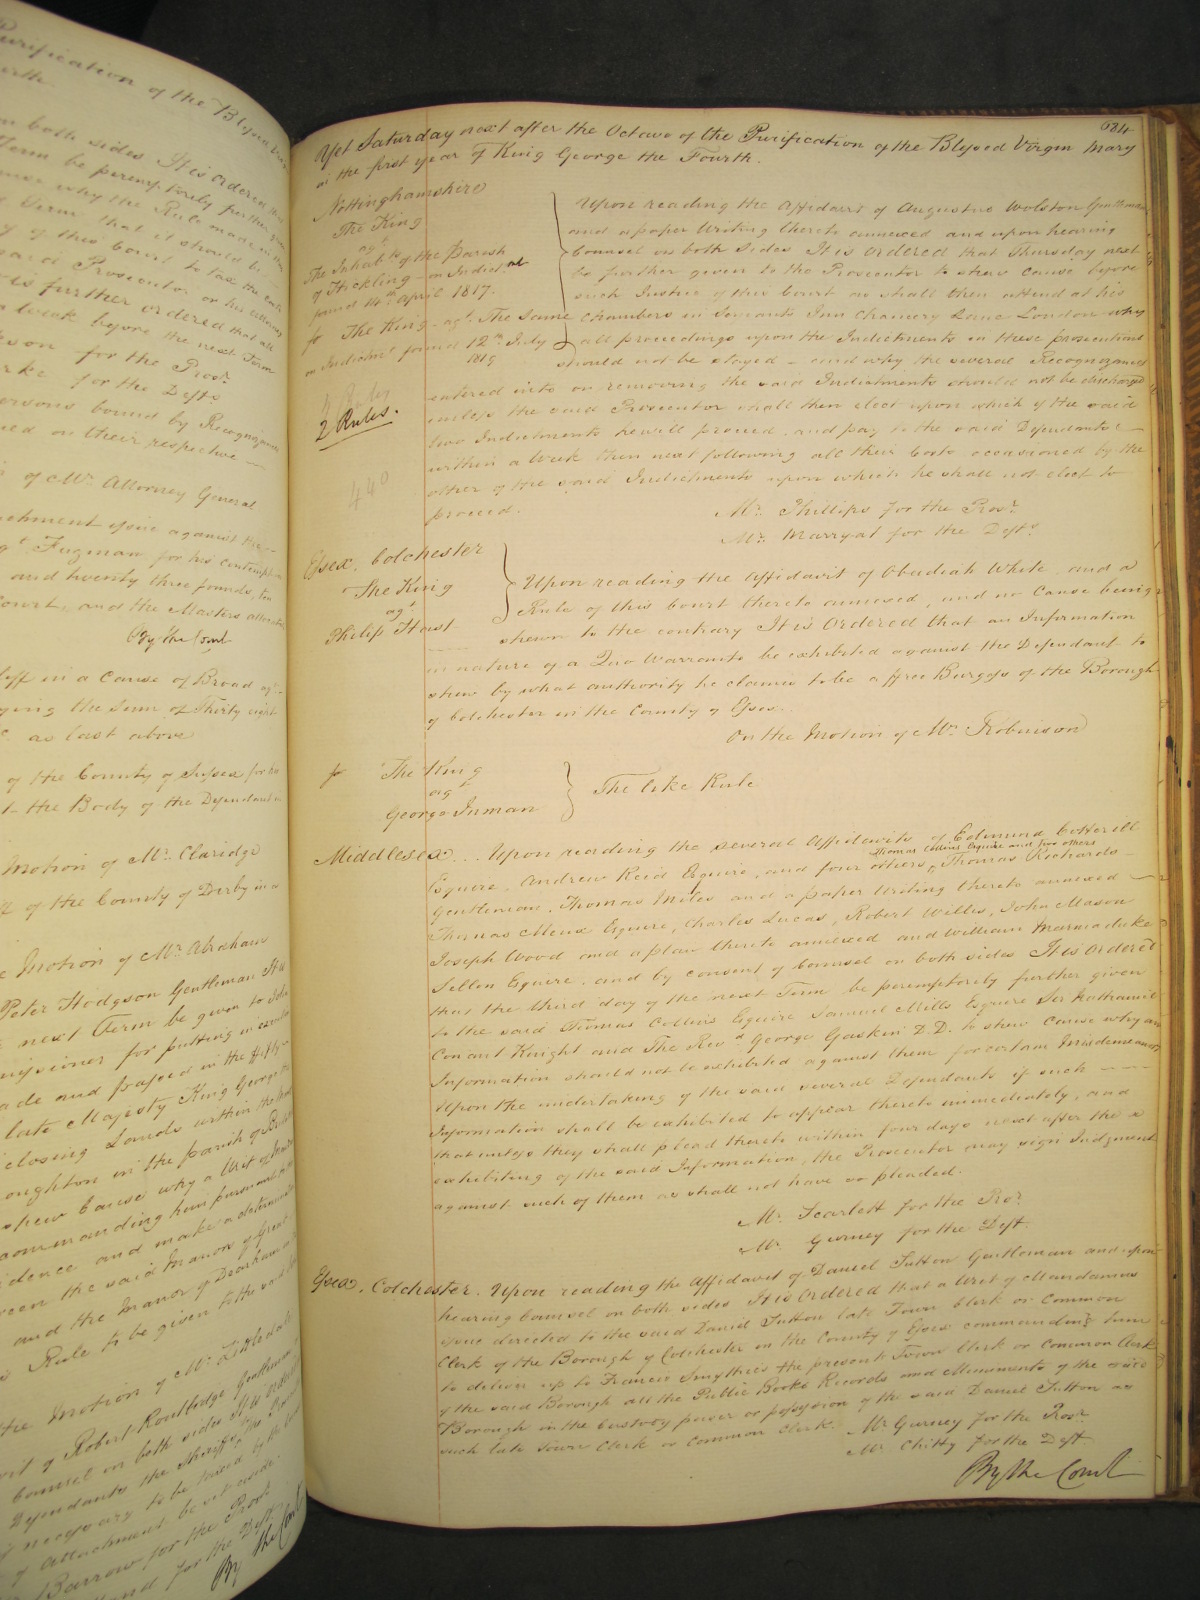 Purification of the Blessed Virgin
both sides It is ordered that
Term be peremptorily further given
why the Rule made in this
Term that it should be
of this Court to tax the costs
said Prosecutor or his attorney
is further ordered that all
a week before the next Term
for the Pros.r
for the Def.ts
persons bound by Recognizance
on their respective
of Mr. Attorney General
issue against the
for his contempt
and twenty three pounds, ten
Court, and the Masters
By the Court
in a Cause of Broad ag.t
the Sum of Thirty eight
as last above
of the County of Sussex for
the Body of the Defendant
Motion of Mr. Claridge
of the County of Derby in a
Motion of Mr. Abraham
Peter Hodgson Gentleman It is
next Term be given to John
for putting in
made and passed in the fifty
late Majesty King George the
closing Lands within the
in the parish of
shew Cause why a Writ of
commanding him pursuant to
and make a
the said Manor of Great
and the Manor of
Rule to be given to the said
the Motion of Mr. Littledale
of Robert Routledge Gentleman
Counsel on both sides It is ordered
Defendants the Sheriff
necessary to be
of Attachment be set aside
Barrow for the Pros.r
for the Def.t
By the Court
684
Yet Saturday next after the Octave of the Purification of the Blessed Virgin Mary
in the first year of King George the Fourth.
Nottinghamshire
The King
ag.t
The Inhab.ts of the Parish
of Hickling - on Indictm.t
found 14th April 1817.
fo The King - ag.t The Same
on Indictm.t found 12th July
1819
2 Rules
2 Rules.
440
Upon reading the Affidavit of Augustus Wolston Gentleman
and a paper Writing thereto annexed and upon hearing
Counsel on both sides It is ordered that Thursday next
be further given to the Prosecutor to shew cause before
such Justice of this Court as shall then attend at his
Chambers in Serjeants Inn Chancery Lane London why
all proceedings upon the Indictments in these prosecutions
should not be stayed - and why the several Recognizances
entered into on removing the said Indictments should not be discharged
unless the said Prosecutor shall then elect upon which of the said
two Indictments he will proceed, and pay to the said Defendants
within a Week then next following all their Costs occasioned by the
other of the said Indictments upon which he shall not elect to
proceed.
Mr. Phillips for the Pros.r
Mr. Marryat for the Def.ts
Essex. Colchester
The King
ag.t
Philip Hast
Upon reading the Affidavit of Obadiah White and a
Rule of this Court thereto annexed, and no Cause being
shewn to the contrary It is Ordered that an Information
in nature of a Quo Warranto be exhibited against the Defendant to
shew by what authority he claims to be a free Burgess of the Borough
of Colchester in the County of Essex.
On the Motion of Mr. Robinson
fo The King
ag.t
George Inman
The like Rule
Middlesex Upon reading the several Affidavits of Edmund Cotterill
Thomas Collins Esquire and two others
Esquire, Andrew Reid Esquire, and four others, Thomas Richards
Gentleman, Thomas Miles and a paper Writing thereto annexed
Thomas Meux Esquire, Charles Lucas, Robert Willis, John Mason
Joseph Wood and a plan thereto annexed and William Marmaduke
Sellon Esquire, and by consent of Counsel on both sides It is Ordered
that the third day of the next Term be peremptorily further given
to the said Thomas Collins Esquire Samuel Mills Esquire Sir Nathaniel
Conant Knight and The Rev.d George Gaskin D.D. to shew cause why an
Information should not be exhibited against them for certain Misdemeanors
Upon the undertaking of the said several Defendants if such
Information shall be exhibited to appear thereto immediately, and
that unless they shall plead thereto within four days next after the
exhibiting of the said Information, the Prosecutor may sign Judgment
against such of them as shall not have so pleaded.
Mr. Scarlett for the Pro.r
Mr. Gurney for the Def.t
Essex. Colchester. Upon reading the Affidavit of Daniel Sutton Gentleman and upon
hearing Counsel on both sides It is Ordered that a Writ of Mandamus
issue directed to the said Daniel Sutton late Town Clerk or Common
Clerk of the Borough of Colchester in the County of Essex commanding him
to deliver up to Francis Smythies the present Town Clerk or Common Clerk
of the said Borough all the Public Books Records and Muniments of the said
Borough in the Custody power or possession of the said Daniel Sutton as
such late Town Clerk or Common Clerk.
Mr. Gurney for the Pros.r
Mr. Chitty for the Def.t
By the Court